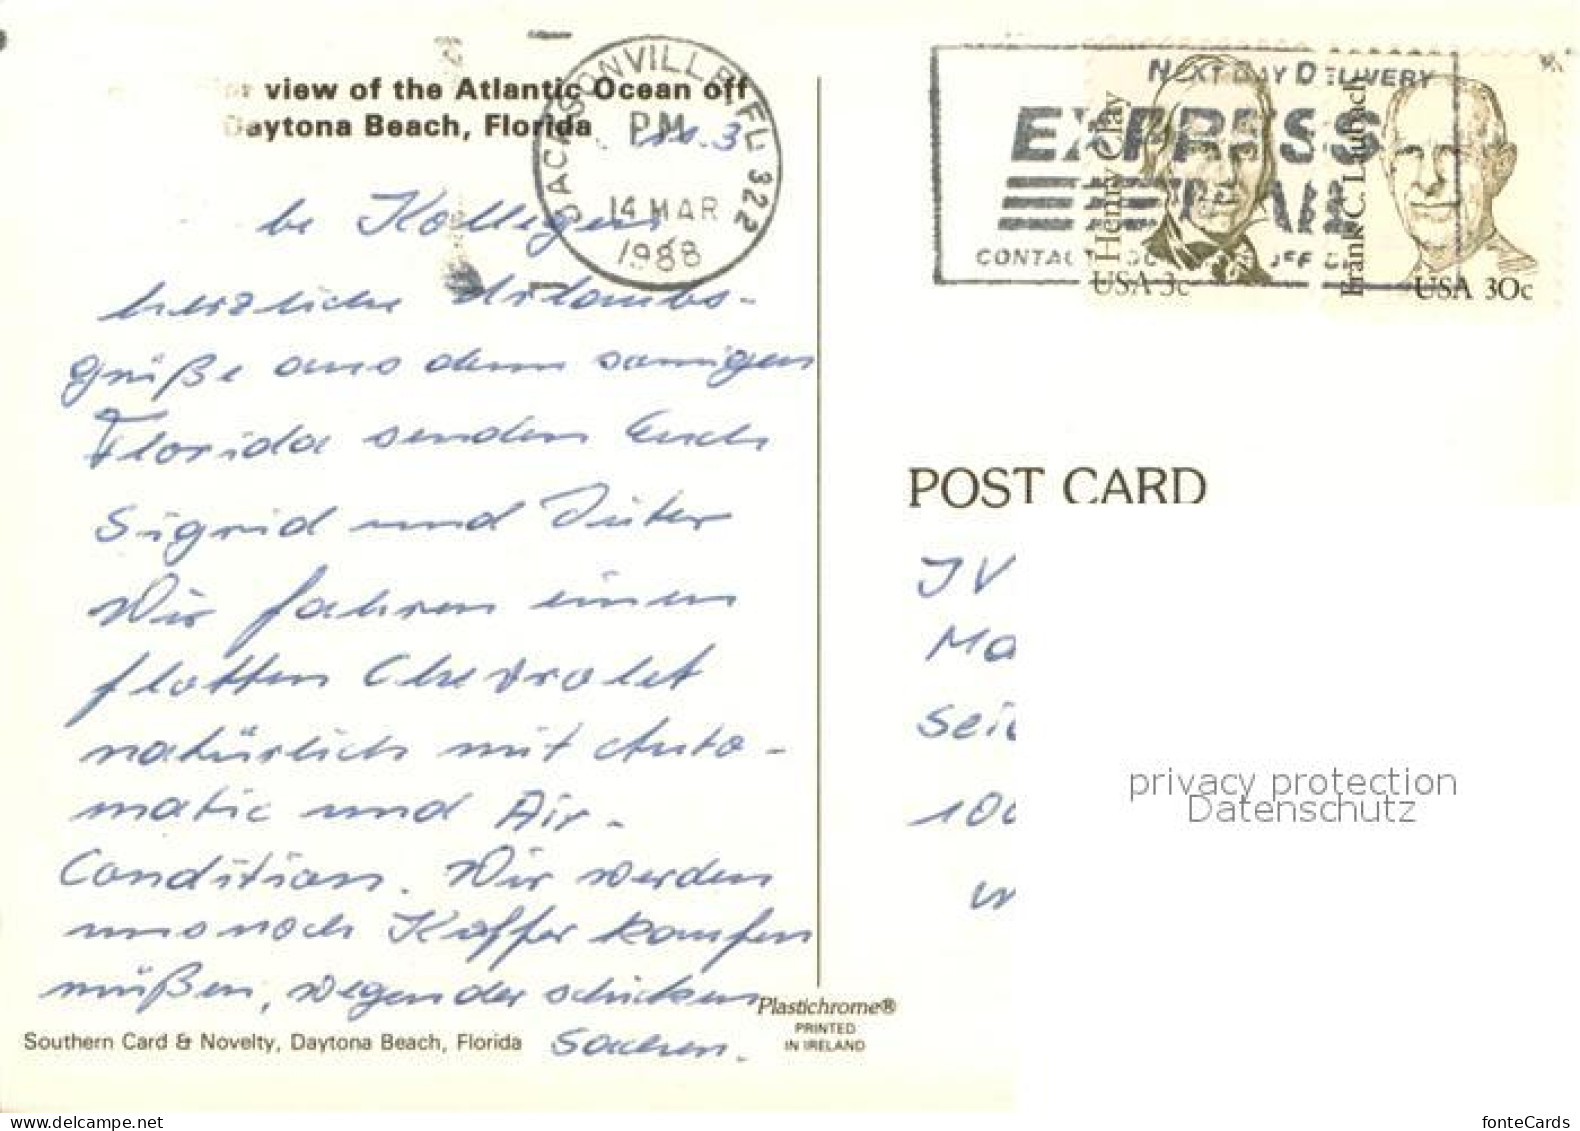 view of the Atlantic Ocean off
Daytona Beach, Florida
JACKSONVILLE, FL 322
PM
14 MAR
1988
11.3
be Kollegen
herzliche Urlaubs-
grüße aus dem sonnigen
Florida senden Euch
Sigrid und Dieter
Wir fahren einen
flotten Chevrolet
natürlich mit Auto-
matic und Air-
Condition. Wir werden
uns noch Koffer kaufen
müßen, wegen der schicken
Sachen.
Southern Card & Novelty, Daytona Beach, Florida
Plastichrome®
PRINTED
IN IRELAND
NEXT DAY DELIVERY
EXPRESS
MAIL
CONTACT
Henny Clay
USA 3c
Frank C. Laubach
USA 30c
POST CARD
JV
Ma
Sei
100
W
privacy protection
Datenschutz
fonteCards